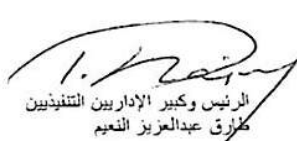 الرئيس وكبير الإداريين التنفيذيين
طارق عبدالعزيز النعيم